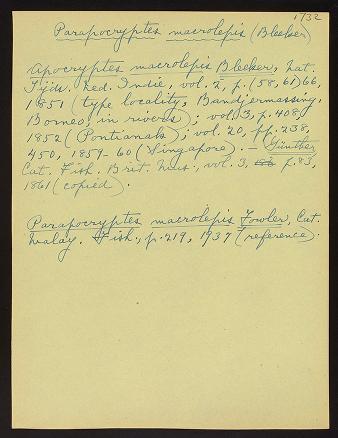 1732
Parapocryptes macrolepis (Bleeker)
Apocryptes macrolepis Bleeker, Nat.
Tijds. Ned. Indië, vol. 2, p. (58, 61) 66,
1851 (type locality, Bandjermassing,
Borneo, in rivers); vol. 3, p. 408,
1852 (Pontianak); vol. 20, pp. 238,
450, 1859-60 (Singapore). — Günther
Cat. Fish. Brit. Mus., vol. 3, p. 83,
1861 (copied).
Parapocryptes macrolepis Fowler, Cat.
Malay. Fish., p. 219, 1937 (reference).